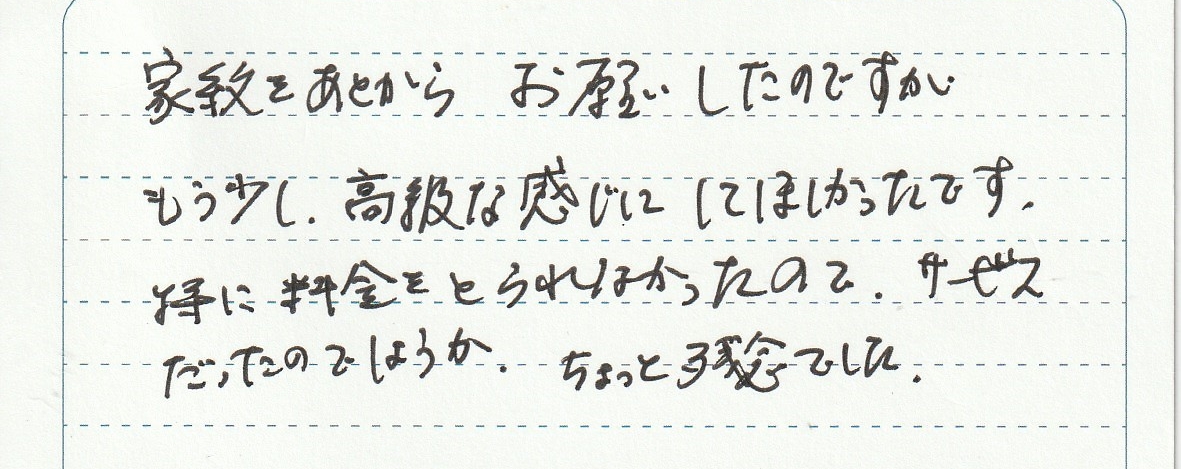 家紋をあとから お願いしたのですが
もう少し、高級な感じに してほしかったです。
特に料金をとられなかったので、サービス
だったのでしょうか。 ちょっと残念でした。